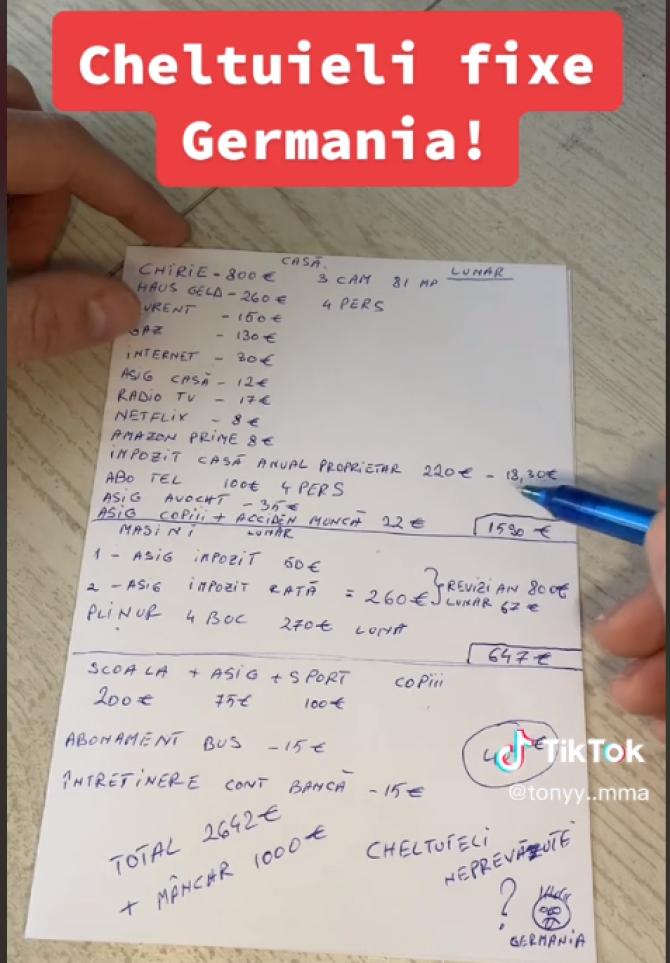 Cheltuieli fixe
Germania!
CASĂ.
CHIRIE - 800 € 3 CAM 81 MP LUNAR
HAUS GELD - 260 € 4 PERS
URENT - 150 €
AZ - 130 €
INTERNET - 30 €
ASIG CASĂ - 12 €
RADIO TV - 17 €
NETFLIX - 8 €
AMAZON PRIME 8 €
IMPOZIT CASĂ ANUAL PROPRIETAR 220 € - 18,30 €
ABO TEL 100 € 4 PERS
ASIG AVOCAT - 35 €
ASIG COPIII + ACCIDEN MUNCĂ 22 € 1590 €
MASINI LUNAR
1 - ASIG IMPOZIT 50 €
2 - ASIG IMPOZIT RATĂ = 260 € } REVIZI AN 800 €
LUNAR 67 €
PLINUR 4 BUC 270 € LUNA
647 €
SCOALA + ASIG + SPORT COPIII
200 € 75 € 100 €
ABONAMENT BUS - 15 €
€
TikTok
@tonyy..mma
ÎNTRETINERE CONT BANCĂ - 15 €
TOTAL 2642 €
+ MÂNCAR 1000 €
CHELTUIELI
NEPREVĂZUTE
?
GERMANIA